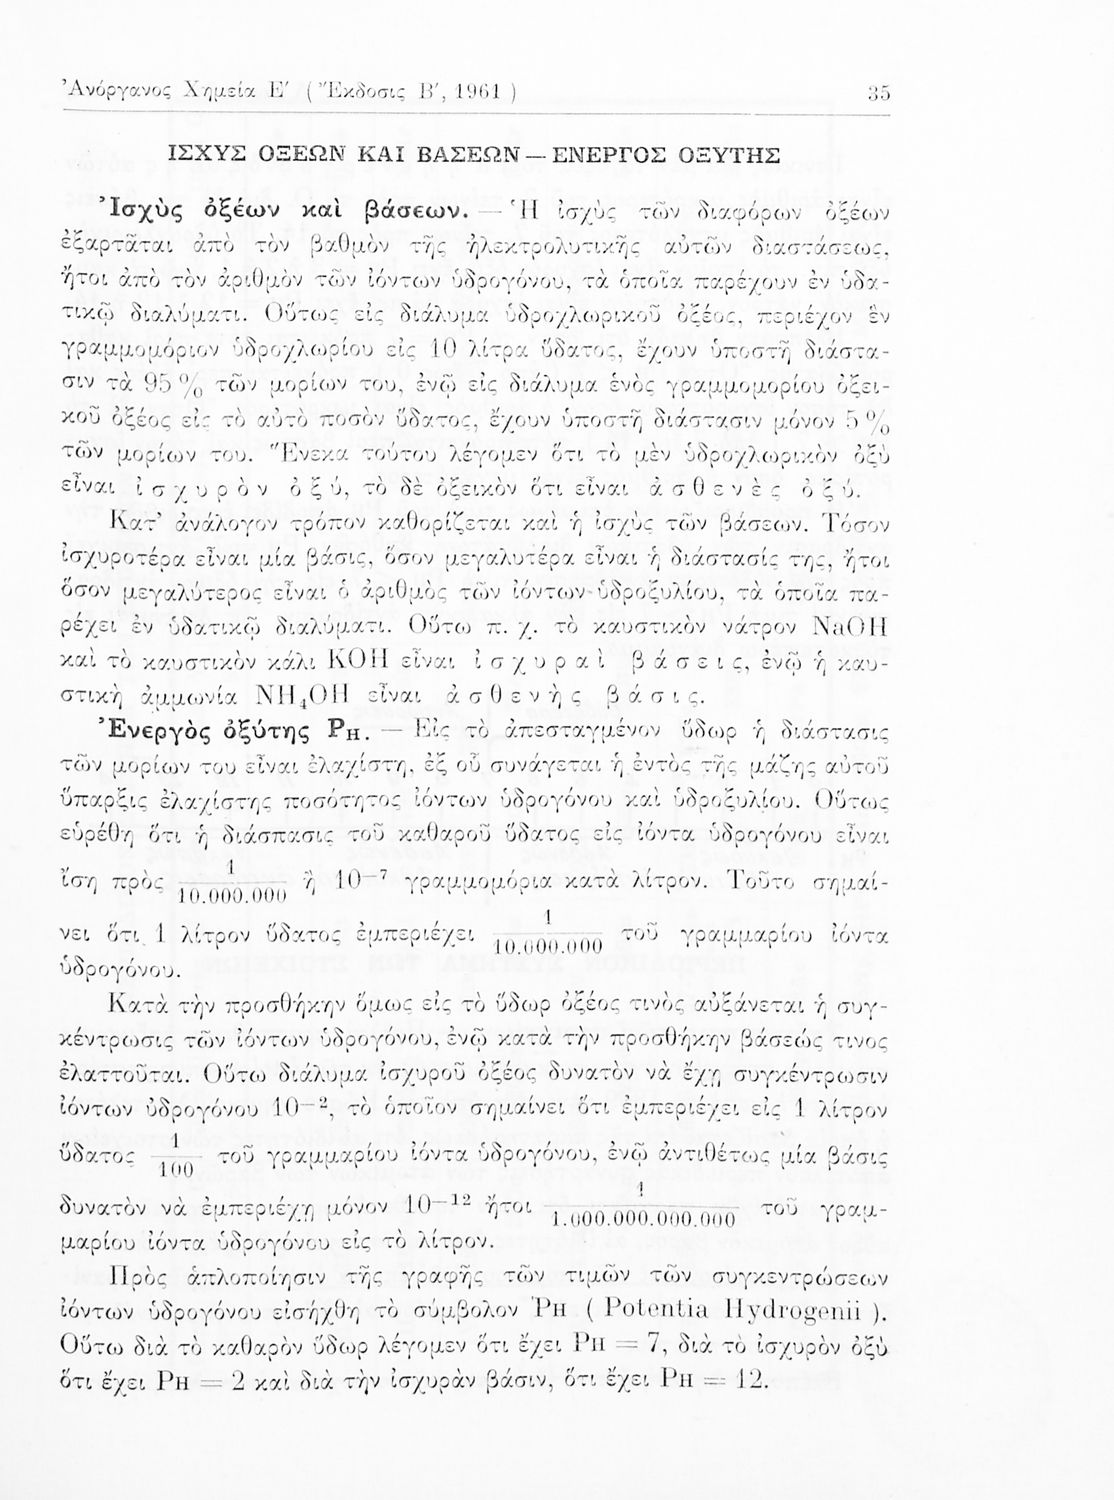 Ἀνόργανος Χημεία Ε΄ ( Ἔκδοσις Β΄, 1961 ) 35
ΙΣΧΥΣ ΟΞΕΩΝ ΚΑΙ ΒΑΣΕΩΝ — ΕΝΕΡΓΟΣ ΟΞΥΤΗΣ
Ἰσχὺς ὀξέων καὶ βάσεων. — Ἡ ἰσχὺς τῶν διαφόρων ὀξέων
ἐξαρτᾶται ἀπὸ τὸν βαθμὸν τῆς ἠλεκτρολυτικῆς αὐτῶν διαστάσεως,
ἤτοι ἀπὸ τὸν ἀριθμὸν τῶν ἰόντων ὑδρογόνου, τὰ ὁποῖα παρέχουν ἐν ὑδα-
τικῷ διαλύματι. Οὕτως εἰς διάλυμα ὑδροχλωρικοῦ ὀξέος, περιέχον ἓν
γραμμομόριον ὑδροχλωρίου εἰς 10 λίτρα ὕδατος, ἔχουν ὑποστῆ διάστα-
σιν τὰ 95 % τῶν μορίων του, ἐνῷ εἰς διάλυμα ἑνὸς γραμμομορίου ὀξει-
κοῦ ὀξέος εἰς τὸ αὐτὸ ποσὸν ὕδατος, ἔχουν ὑποστῆ διάστασιν μόνον 5 %
τῶν μορίων του. Ἕνεκα τούτου λέγομεν ὅτι τὸ μὲν ὑδροχλωρικὸν ὀξὺ
εἶναι ἰσχυρὸν ὀξύ, τὸ δὲ ὀξεικὸν ὅτι εἶναι ἀσθενὲς ὀξύ.
Κατ’ ἀνάλογον τρόπον καθορίζεται καὶ ἡ ἰσχὺς τῶν βάσεων. Τόσον
ἰσχυροτέρα εἶναι μία βάσις, ὅσον μεγαλυτέρα εἶναι ἡ διάστασίς της, ἤτοι
ὅσον μεγαλύτερος εἶναι ὁ ἀριθμὸς τῶν ἰόντων ὑδροξυλίου, τὰ ὁποῖα πα-
ρέχει ἐν ὑδατικῷ διαλύματι. Οὕτω π. χ. τὸ καυστικὸν νάτρον NaOH
καὶ τὸ καυστικὸν κάλι KOH εἶναι ἰσχυραὶ βάσεις, ἐνῷ ἡ καυ-
στικὴ ἀμμωνία NH₄OH εἶναι ἀσθενὴς βάσις.
Ἐνεργὸς ὀξύτης PH. — Εἰς τὸ ἀπεσταγμένον ὕδωρ ἡ διάστασις
τῶν μορίων του εἶναι ἐλαχίστη, ἐξ οὗ συνάγεται ἡ ἐντὸς τῆς μάζης αὐτοῦ
ὕπαρξις ἐλαχίστης ποσότητος ἰόντων ὑδρογόνου καὶ ὑδροξυλίου. Οὕτως
εὑρέθη ὅτι ἡ διάσπασις τοῦ καθαροῦ ὕδατος εἰς ἰόντα ὑδρογόνου εἶναι
ἴση πρὸς 1/10.000.000 ἢ 10⁻⁷ γραμμομόρια κατὰ λίτρον. Τοῦτο σημαί-
νει ὅτι 1 λίτρον ὕδατος ἐμπεριέχει 1/10.000.000 τοῦ γραμμαρίου ἰόντα
ὑδρογόνου.
Κατὰ τὴν προσθήκην ὅμως εἰς τὸ ὕδωρ ὀξέος τινὸς αὐξάνεται ἡ συγ-
κέντρωσις τῶν ἰόντων ὑδρογόνου, ἐνῷ κατὰ τὴν προσθήκην βάσεώς τινος
ἐλαττοῦται. Οὕτω διάλυμα ἰσχυροῦ ὀξέος δυνατὸν νὰ ἔχῃ συγκέντρωσιν
ἰόντων ὑδρογόνου 10⁻², τὸ ὁποῖον σημαίνει ὅτι ἐμπεριέχει εἰς 1 λίτρον
ὕδατος 1/100 τοῦ γραμμαρίου ἰόντα ὑδρογόνου, ἐνῷ ἀντιθέτως μία βάσις
δυνατὸν νὰ ἐμπεριέχῃ μόνον 10⁻¹² ἤτοι 1/1.000.000.000.000 τοῦ γραμ-
μαρίου ἰόντα ὑδρογόνου εἰς τὸ λίτρον.
Πρὸς ἁπλοποίησιν τῆς γραφῆς τῶν τιμῶν τῶν συγκεντρώσεων
ἰόντων ὑδρογόνου εἰσήχθη τὸ σύμβολον PH ( Potentia Hydrogenii ).
Οὕτω διὰ τὸ καθαρὸν ὕδωρ λέγομεν ὅτι ἔχει PH = 7, διὰ τὸ ἰσχυρὸν ὀξὺ
ὅτι ἔχει PH = 2 καὶ διὰ τὴν ἰσχυρὰν βάσιν, ὅτι ἔχει PH = 12.